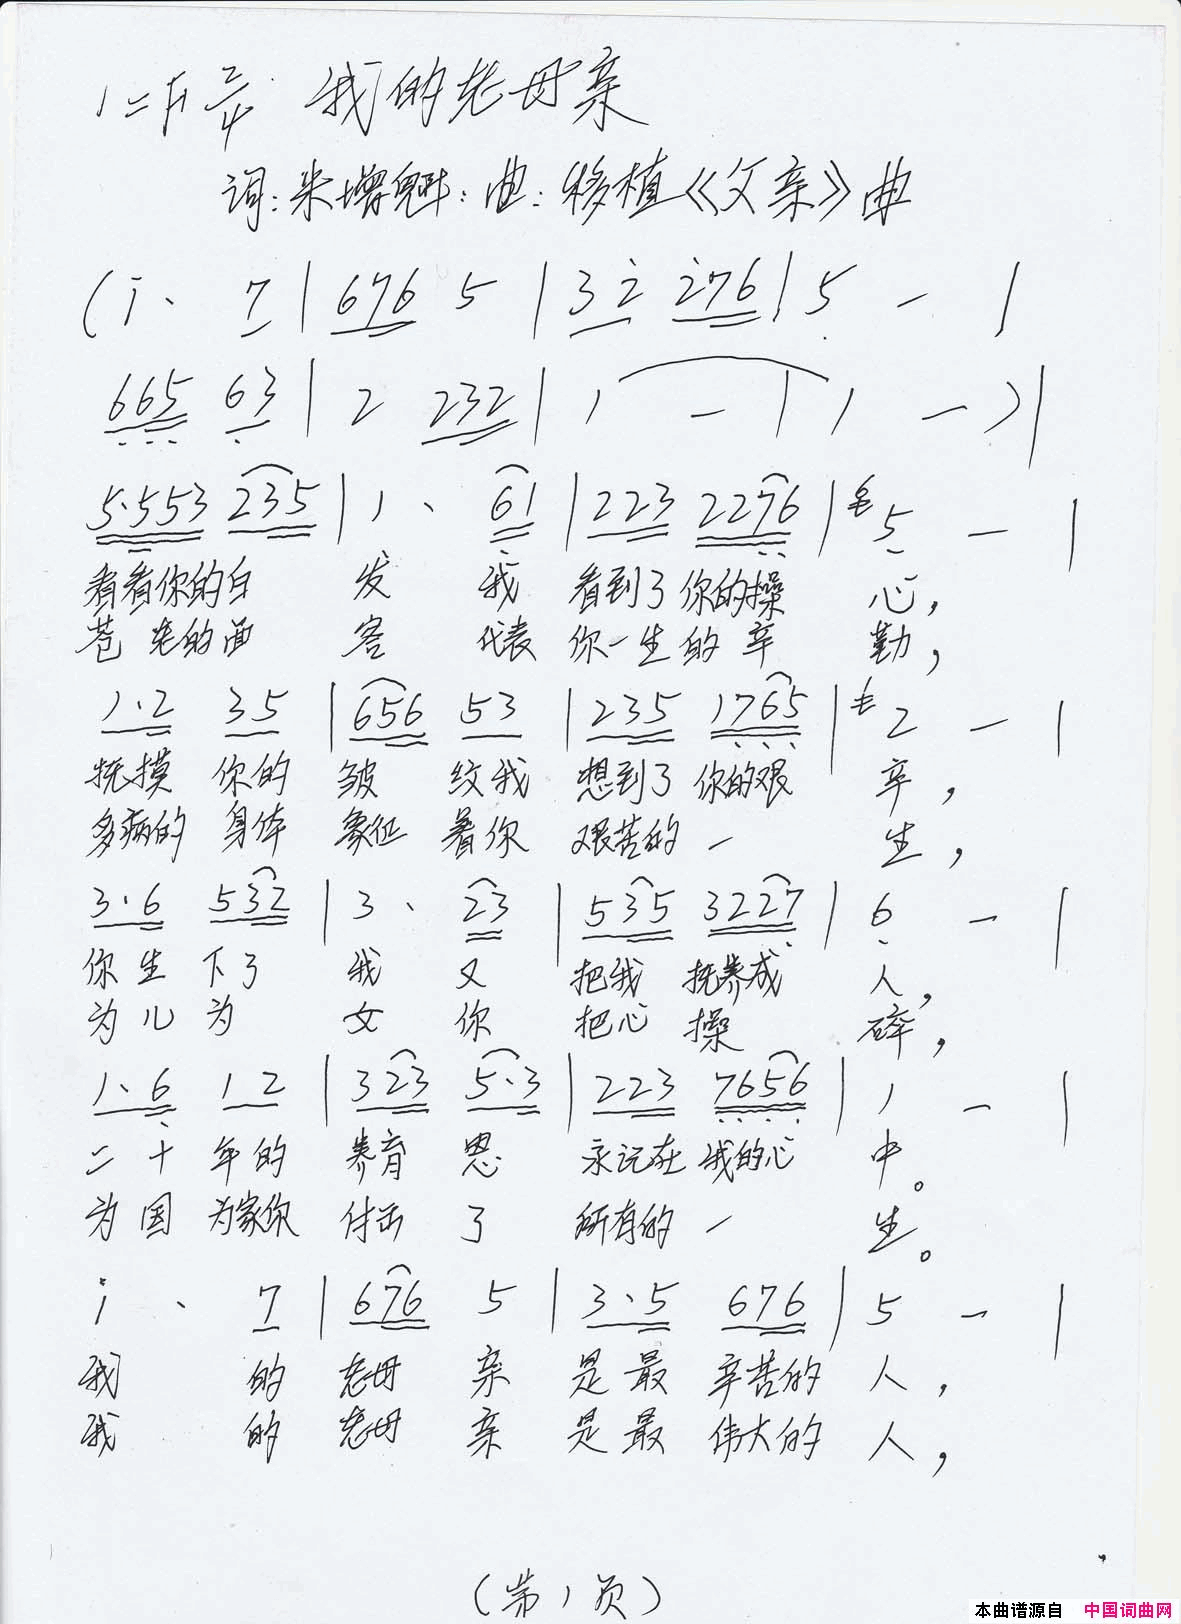 1=F 2/4 我的老母亲
词:朱增魁:曲:移植《父亲》曲
(i· 7|676 5|32 276|5 -|
665 63|2 232|1 -|1 -)|
5·553 235|1· 61|223 2276|5 -|
看看你的白 发 我 看到了你的操 心,
苍老的面 容 代表 你一生的辛 勤,
1·2 35|656 53|235 1765|2 -|
抚摸 你的 皱 纹我 想到了 你的艰 辛,
多病的 身体 象征 着你 艰苦的 一 生,
3·6 532|3· 23|535 3227|6 -|
你生 下了 我 又 把我 抚养成 人,
为儿为 女 你 把心 操 碎,
1·6 12|323 5·3|223 7656|1 -|
二十 年的 养育 恩 永远在 我的心 中。
为国 为家你 付出 了 所有的 一 生。
i· 7|676 5|3·5 676|5 -|
我 的 老母 亲 是最 辛苦的 人,
我 的 老母 亲 是最 伟大的 人,
(第1页)
本曲谱源自 中国词曲网